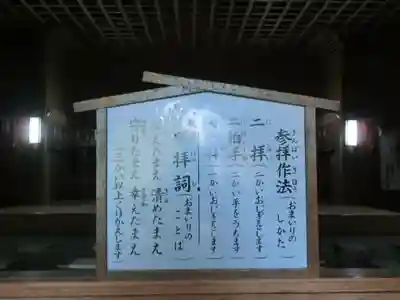 参拝作法(おまいりのしかた)
さんぱいさほう
二拝(二かいおじぎをします)
二拍手(二かい手をうちます)
(一かいおじぎをします)
拝詞(おまいりのことば)
たまえ 清めたまえ
守りたまえ 幸えたまえ
(三かい以上くりかえします)